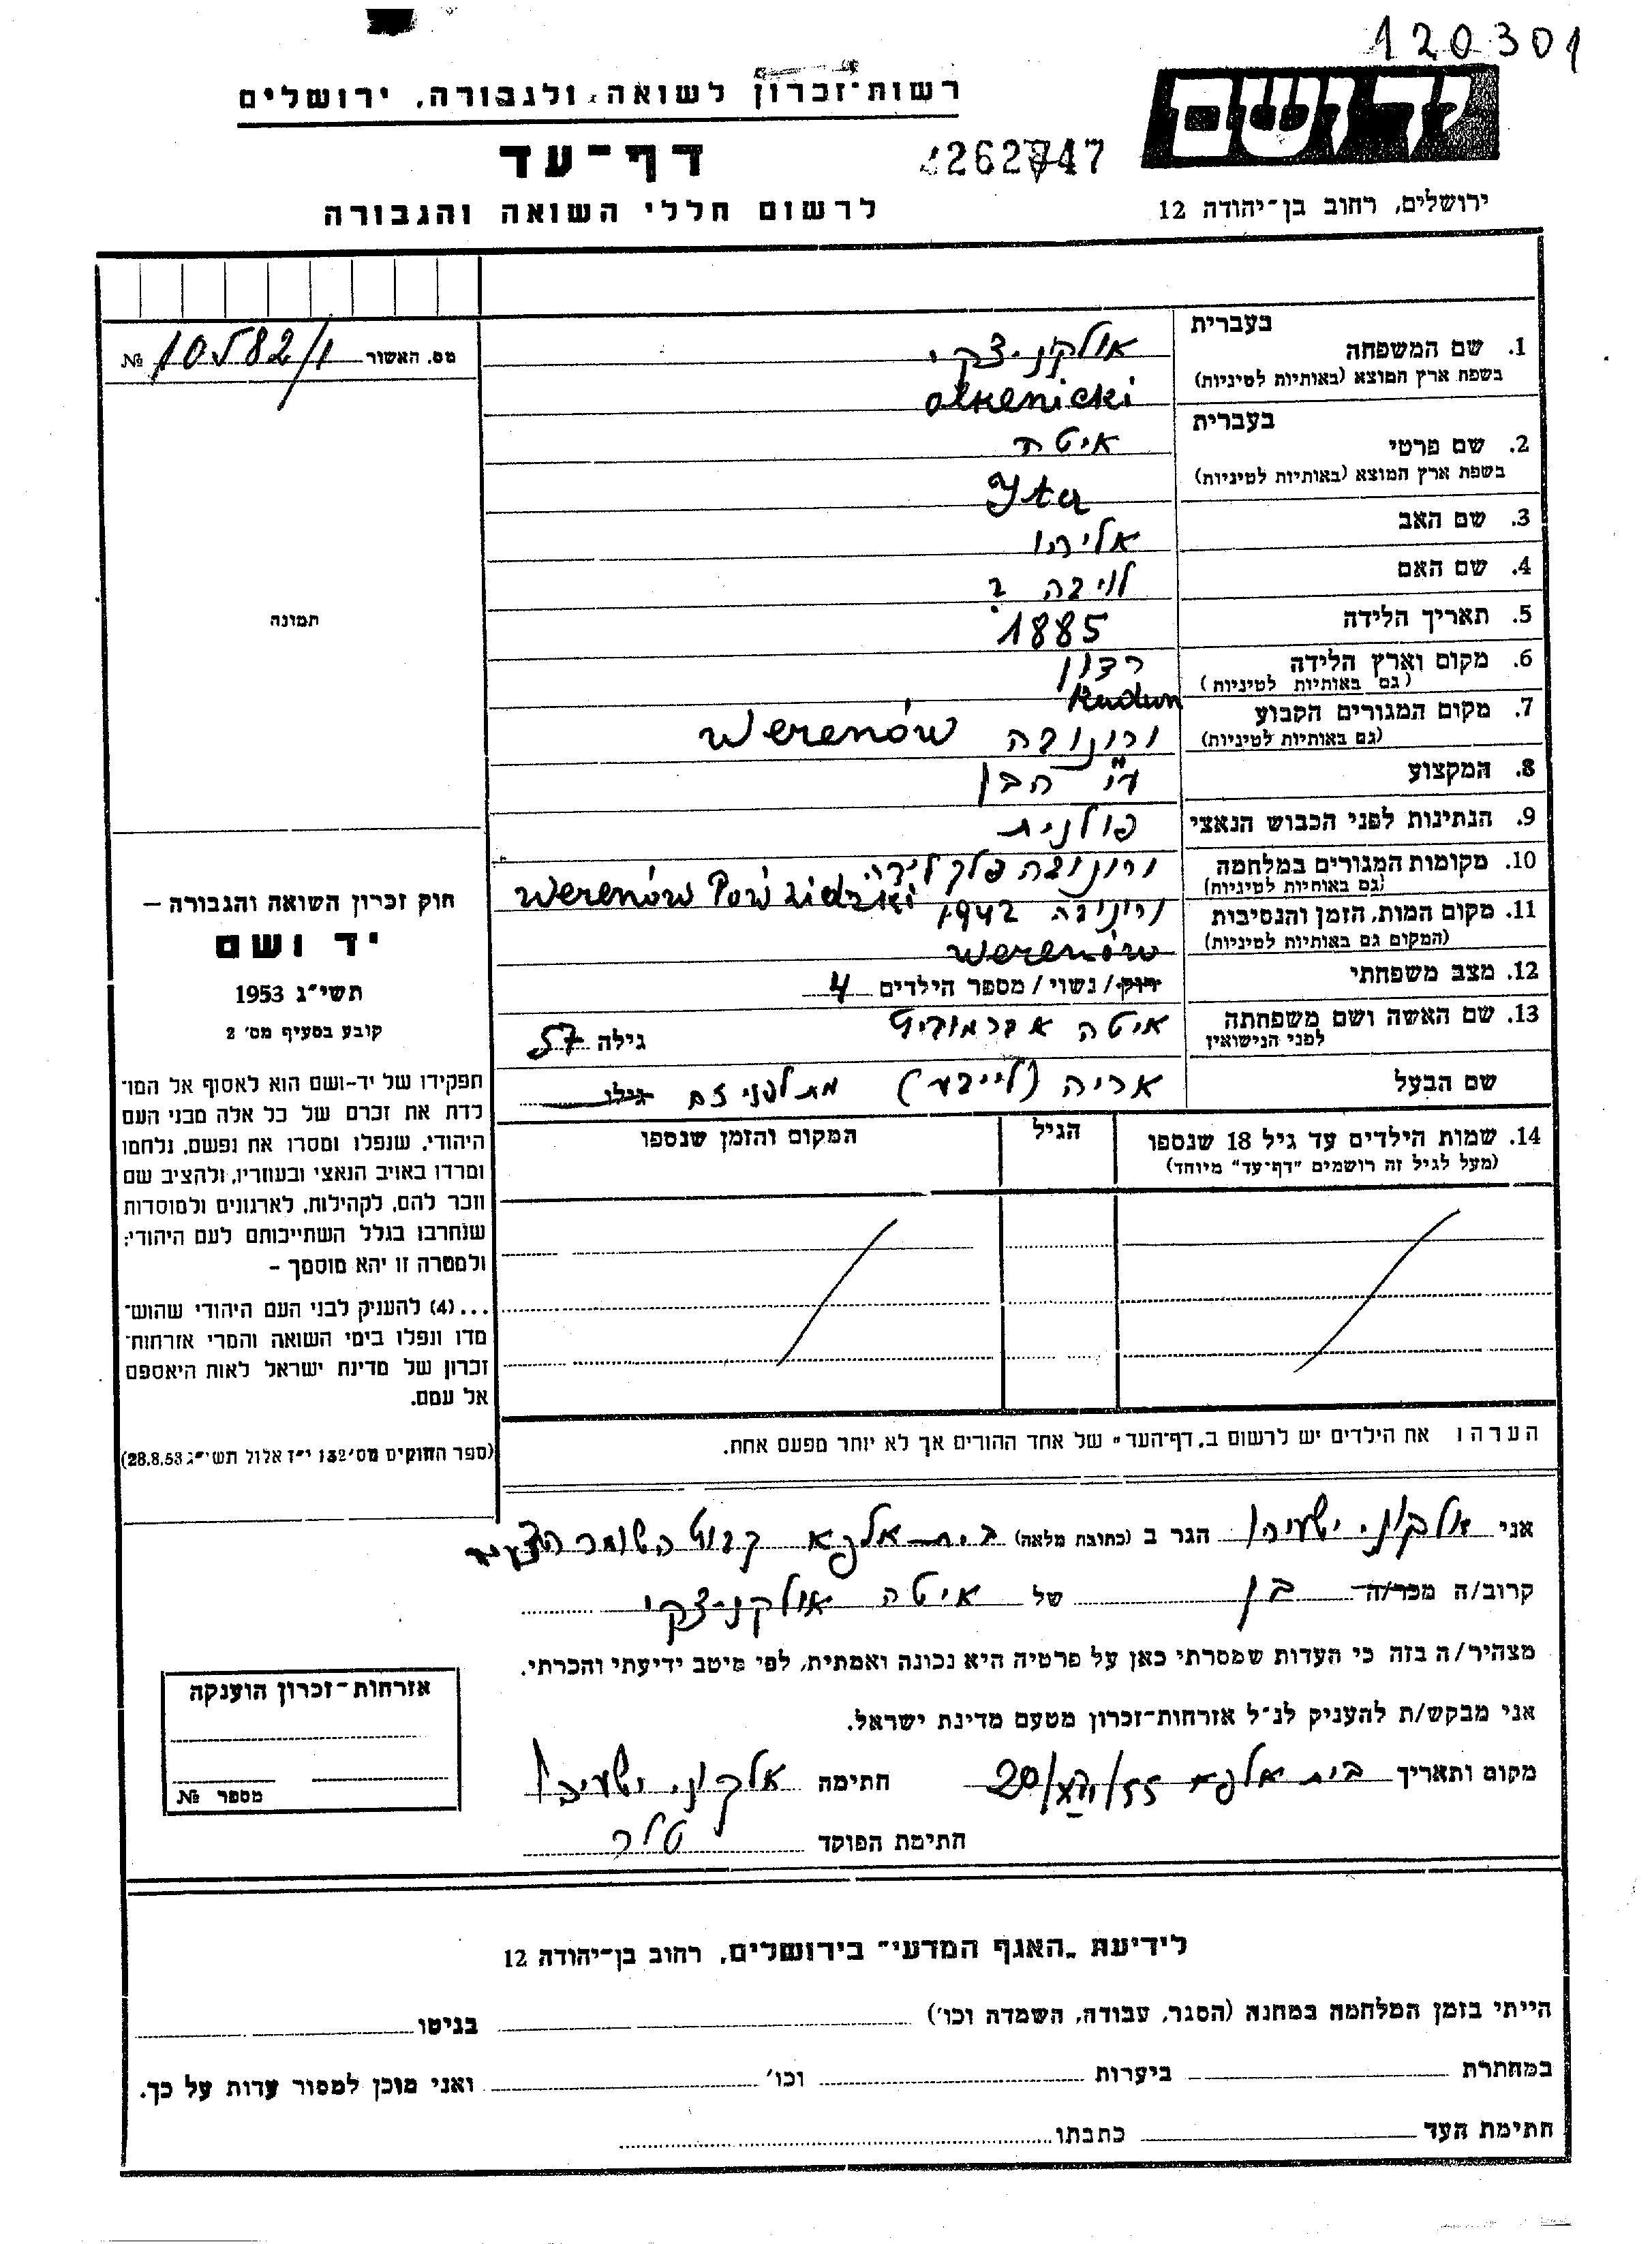 120301
רשות-זכרון לשואה ולגבורה, ירושלים
דף-עד
לרשום חללי השואה והגבורה
ירושלים, רחוב בן-יהודה 12
מס. האשור 10582/1 №
בעברית
1. שם המשפחה אולקניצקי
בשפת ארץ המוצא (באותיות לטיניות) olkenicki
בעברית
2. שם פרטי איטה
בשפת ארץ המוצא (באותיות לטיניות) Yta
3. שם האב אליהו
4. שם האם
5. תאריך הלידה 1885
6. מקום וארץ הלידה רדון
(גם באותיות לטיניות) Radun
7. מקום המגורים הקבוע ורונובה Werenów
(גם באותיות לטיניות)
8. המקצוע ע״י הבן
9. הנתינות לפני הכבוש הנאצי פולנית
10. מקומות המגורים במלחמה ורונובה פלך לידה
(גם באותיות לטיניות) Werenów Pow Lidzki
11. מקום המות, הזמן והנסיבות ורונובה 1942
(המקום גם באותיות לטיניות) Werenów
12. מצב משפחתי רוק/נשוי/מספר הילדים 4
13. שם האשה ושם משפחתה איטה אברמוביץ גילה 57
לפני הנישואין
שם הבעל אריה (לייבע) מת לפני זה גילו
14. שמות הילדים עד גיל 18 שנספו הגיל המקום והזמן שנספו
(מעל לגיל זה רושמים "דף-עד" מיוחד)
הערה: את הילדים יש לרשום ב„דף-העד" של אחד ההורים אך לא יותר מפעם אחת.
תמונה
חוק זכרון השואה והגבורה –
יד ושם
תשי"ג 1953
קובע בסעיף מס׳ 2
תפקידו של יד-ושם הוא לאסוף אל המו־
לדת את זכרם של כל אלה מבני העם
היהודי, שנפלו ומסרו את נפשם, נלחמו
ומרדו באויב הנאצי ובעוזריו, ולהציב שם
וזכר להם, לקהילות, לארגונים ולמוסדות
שנחרבו בגלל השתייכותם לעם היהודי;
ולמטרה זו יהא מוסמך –
...(4) להעניק לבני העם היהודי שהוש־
מדו ונפלו בימי השואה והמרי אזרחות־
זכרון של מדינת ישראל לאות היאספם
אל עמם.
(ספר החוקים מס׳ 132 י״ז אלול תשי״ג 28.8.53)
אני אלקוני ישעיהו הגר ב (כתובת מלאה) בית-אלפא קבוץ השומר הצעיר
קרוב/ה מכר/ה בן של איטה אולקניצקי
מצהיר/ה בזה כי העדות שמסרתי כאן על פרטיה היא נכונה ואמתית, לפי מיטב ידיעתי והכרתי.
אני מבקש/ת להעניק לנ"ל אזרחות-זכרון מטעם מדינת ישראל.
מקום ותאריך בית אלפא חתימה אלקוני ישעיהו
חתימת הפוקד
אזרחות-זכרון הוענקה
מספר №
לידיעת „האגף המדעי" בירושלים, רחוב בן-יהודה 12
הייתי בזמן המלחמה במחנה (הסגר, עבודה, השמדה וכו׳) בגיטו
במחתרת ביערות וכו׳ ואני מוכן למסור עדות על כך.
חתימת העד כתבתו